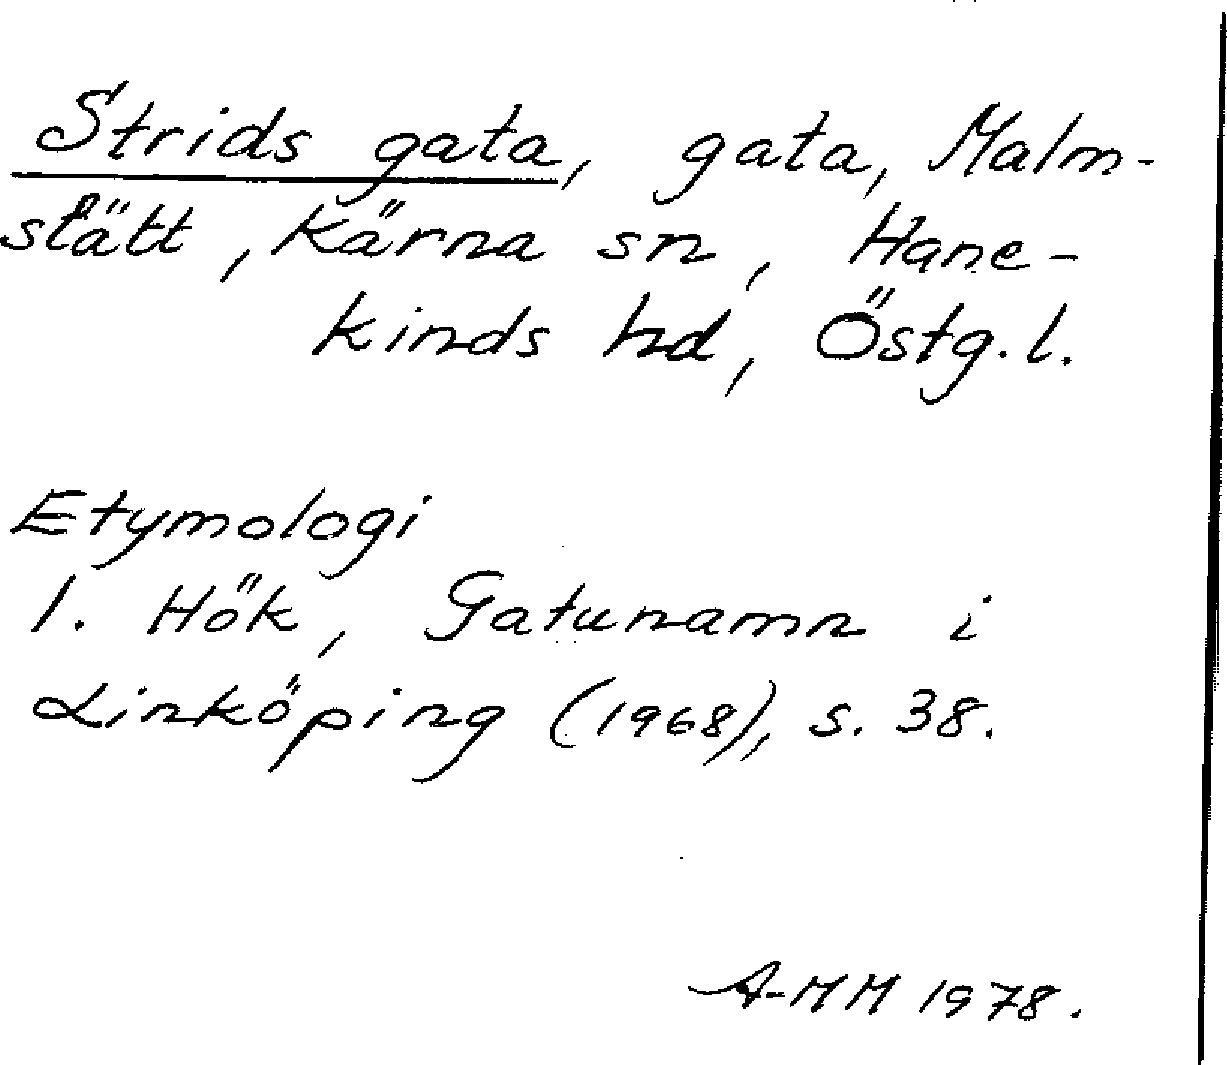 Strids gata, gata, Malm-
slätt, Kärna sn, Hane-
kinds hd, Östg.l.
Etymologi
1. Hök, Gatunamn i
Linköping (1968), s. 38.
A-MM 1978.